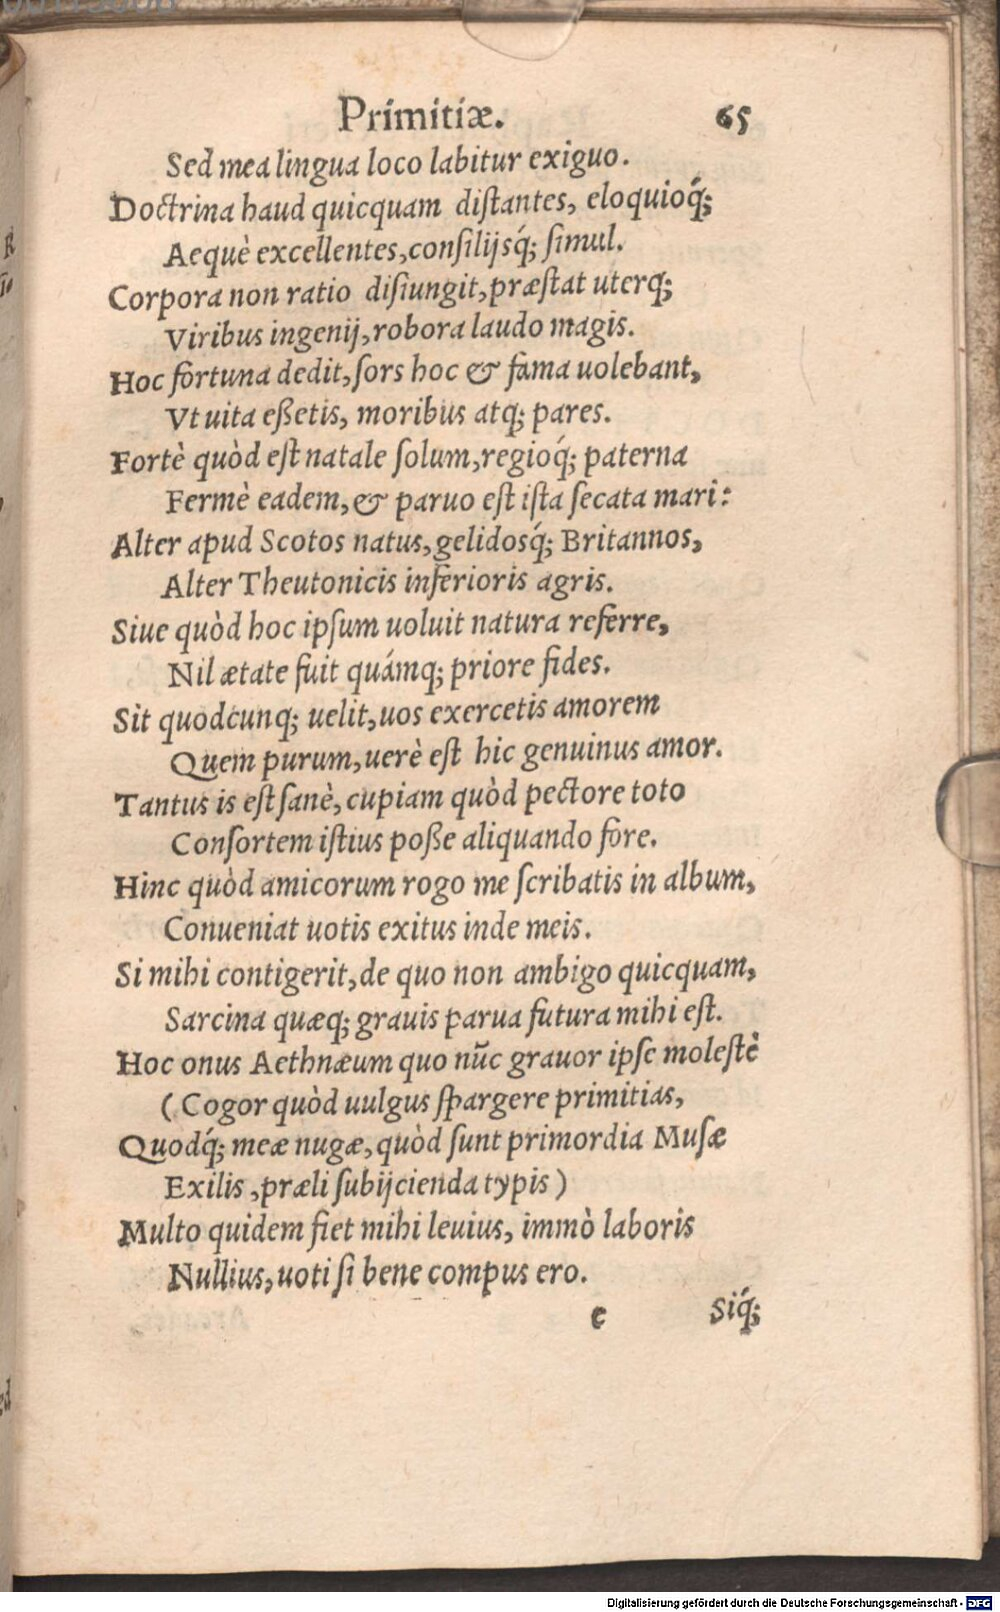 Primitiæ. 65
Sed mea lingua loco labitur exiguo.
Doctrina haud quicquam diſtantes, eloquioq́;
Aequè excellentes, conſilijsq́; ſimul.
Corpora non ratio diſiungit, præſtat uterq;
Viribus ingenij, robora laudo magis.
Hoc fortuna dedit, ſors hoc & fama uolebant,
Vt uita eßetis, moribus atq; pares.
Fortè quòd eſt natale ſolum, regioq́; paterna
Fermè eadem, & paruo eſt iſta ſecata mari:
Alter apud Scotos natus, gelidosq́; Britannos,
Alter Theutonicis inferioris agris.
Siue quòd hoc ipſum uoluit natura referre,
Nil ætate fuit quámq; priore fides.
Sit quodcunq; uelit, uos exercetis amorem
Quem purum, uerè eſt hic genuinus amor.
Tantus is eſt ſanè, cupiam quòd pectore toto
Conſortem iſtius poße aliquando fore.
Hinc quòd amicorum rogo me ſcribatis in album,
Conueniat uotis exitus inde meis.
Si mihi contigerit, de quo non ambigo quicquam,
Sarcina quæq; grauis parua futura mihi eſt.
Hoc onus Aethnæum quo nūc grauor ipſe moleſtè
(Cogor quòd uulgus ſpargere primitias,
Quodq́; meæ nugæ, quòd ſunt primordia Muſæ
Exilis, præli ſubijcienda typis)
Multo quidem fiet mihi leuius, immò laboris
Nullius, uoti ſi bene compus ero.
e Siq́;
Digitalisierung gefördert durch die Deutsche Forschungsgemeinschaft - DFG